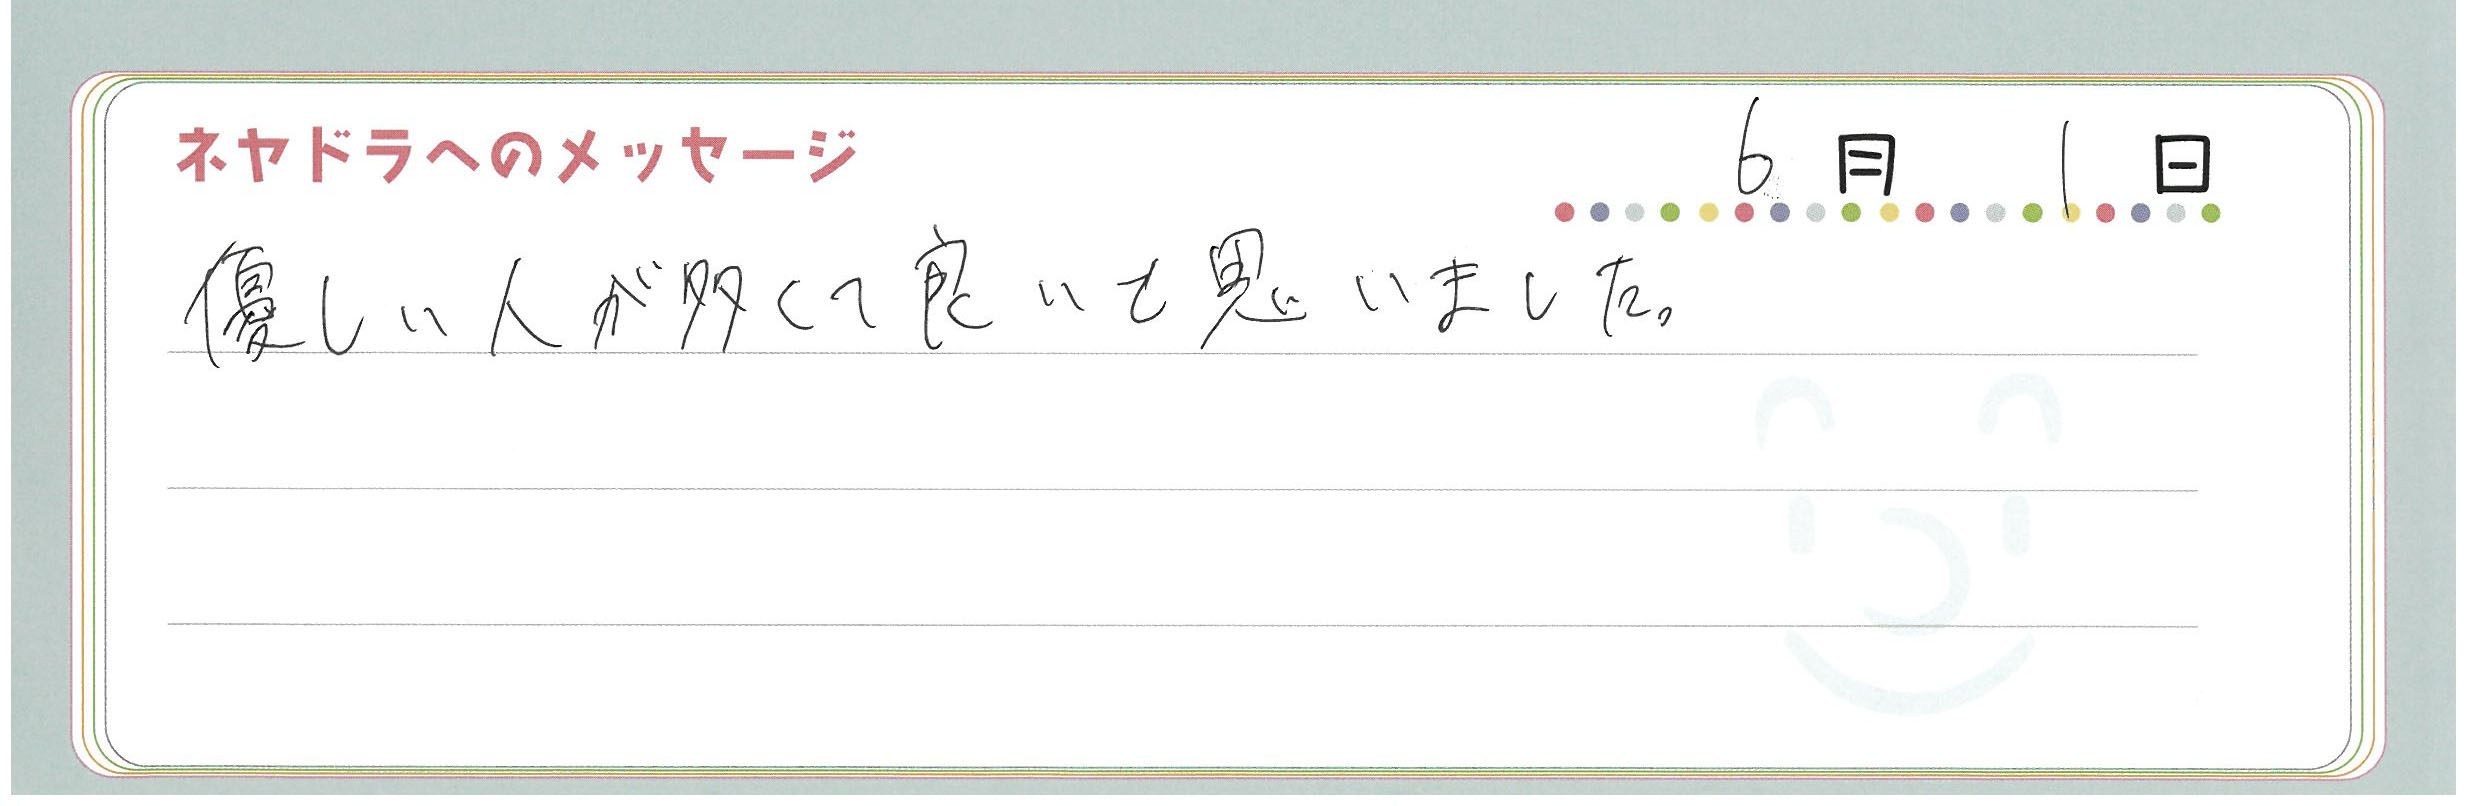 ネヤドラへのメッセージ
6月1日
優しい人が多くて良いと思いました。